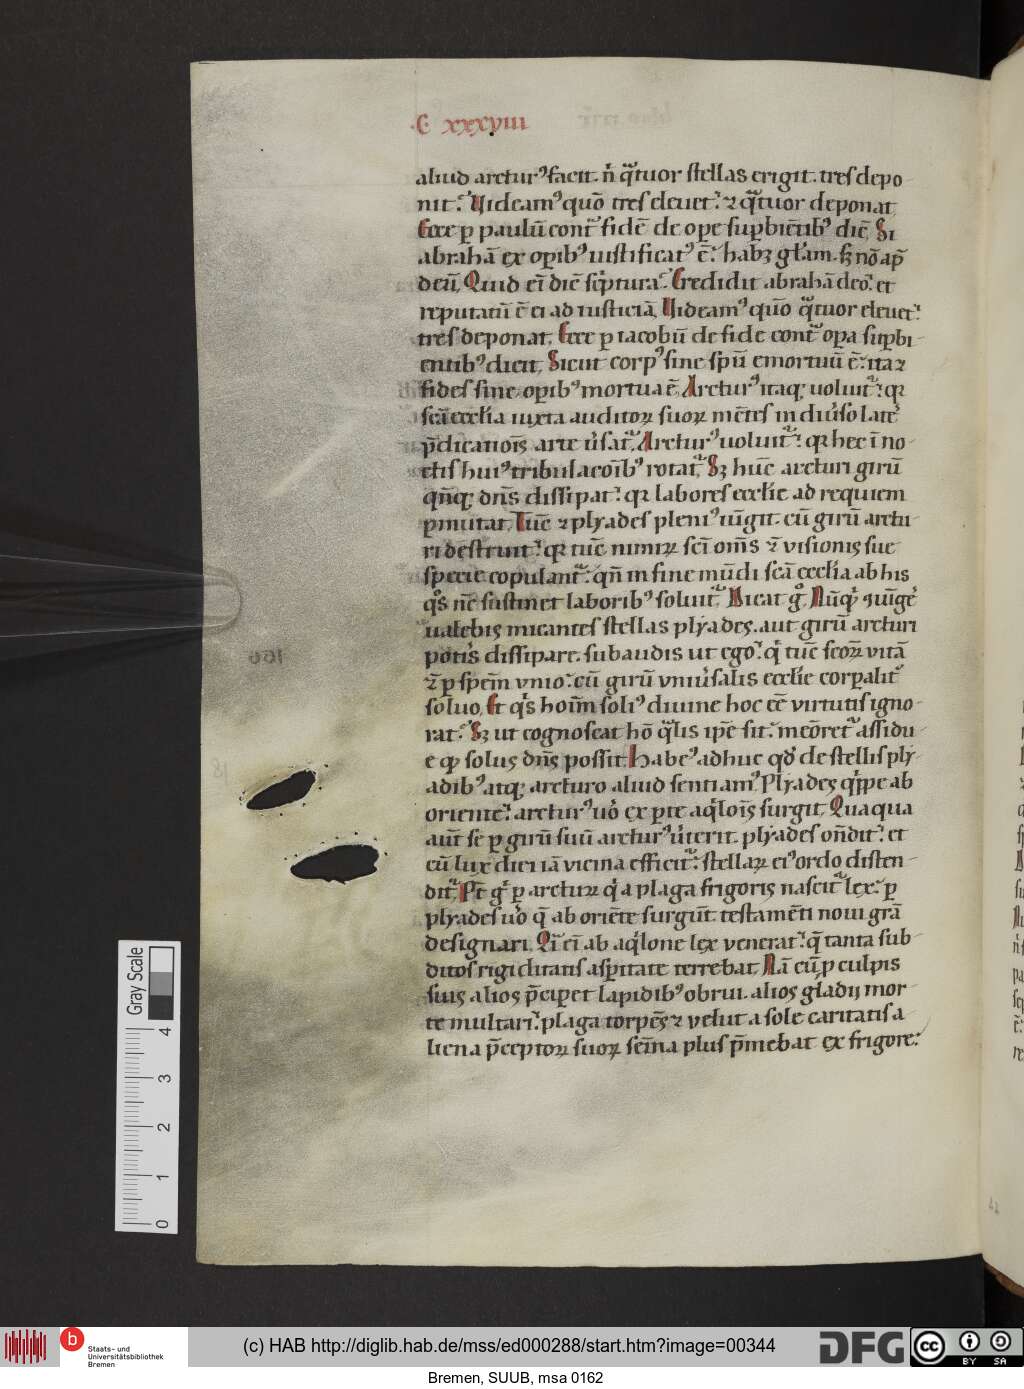 ·C· xxxviii
aliud arctur᾽ facit. n͛ q̈tuor stellas erigit. tres depo-
nit. Uideam᾽ quō tres eleuet. ⁊ q̈tuor deponat.
Ecce ꝑ paulū cont͛ fidē de ope supbiētib᾽ dic̄. Si
abrahā ex opib᾽ iustificat᾽ ē. habꝫ gl̄am. sꝫ nō ap̄
deū. Quid eī dic̄ sc̄ptura. Credidit abrahā deo. et
reputatū ē ei ad iusticiā. Uideam᾽ quō q̈tuor eleuet.
tres deponat. Ecce ꝑ iacobū de fide cont͛ opa supbi-
entib᾽ dicit. Sicut corp᾽ sine spū emortuū ē. ita ⁊
fides sine opib᾽ mortua ē. Arctur᾽ itaqꝫ uoluit͛. qꝛ
sc̄a eccl̄ia iuxta auditoꝝ suoꝝ mētes in diu͛so lat͛e
p̄dicatiois arte u͛sat͛. Arctur᾽ uoluit͛. qꝛ hec ī no-
ctis hui᾽ tribulacoīb᾽ rotat͛. Sꝫ hūc arcturi girū
qn̄qꝫ dn̄s dissipat. qꝛ labores eccl̄ie ad requiem
ꝑmutat. Tūc ⁊ plyades pleni᾽ iūgit. cū girū arctu-
ri destruit. qꝛ tūc nimiꝝ sc̄i om̄s ⁊ visionis sue
specie copulant͛. qn̄ in fine mūdi sc̄a eccl̄ia ab his
q͛s nc̄ sustinet laborib᾽ soluit͛. Dicat g͛. Nūqͥd ꝯiūge͛
ualebis micantes stellas plyades. aut girū arcturi
potis dissipare. subaudis ut ego. qͥ tūc sc̄oꝝ vitā
⁊ ꝑ spem̄ vnio. cū girū vniu͛salis eccl̄ie corpalit͛
soluo. Et qͥs hoim̄ soli᾽ diuine hoc eē virtutis igno-
rat. Sꝫ ut cognoscat hō q̈lis ip̄e sit. meōret͛ assidu-
e qͥd solus dn̄s possit. Habe᾽ adhuc qd̓ de stellis ply-
adib᾽ atqꝫ arcturo aliud sentiam᾽. Plyades qͥppe ab
oriente. arctur᾽ uo͛ ex ꝑte aqͥlois surgit. Quaqua
aut̄ se ꝑ girū suū arctur᾽ u͛terit. plyades on̄dit. et
cū lux diei iā vicina efficit͛. stellaꝝ ei᾽ ordo disten-
dit͛. Pt̄ g͛ ꝑ arcturꝝ qͥ a plaga frigoris nascit͛ lex. ꝑ
plyades uo͛ q̄ ab oriēte surgūt. testamēti noui gr̄a
designari. Qͥ eī ab aqͥlone lex venerat. q̄ tanta sub-
ditos rigiditatis asꝑitate terrebat. Nā cū ꝑ culpis
suis alios p̄cipet lapidib᾽ obrui. alios gladij mor-
te multari. plaga torpēs ⁊ velut a sole caritatis a-
liena p̄ceptoꝝ suoꝝ sem̄ina plus p̄mebat ex frigore.
166
Gray Scale
4
3
2
1
0
b
Staats- und
Universitätsbibliothek
Bremen
(c) HAB http://diglib.hab.de/mss/ed000288/start.htm?image=00344
DFG
cc
BY SA
Bremen, SUUB, msa 0162